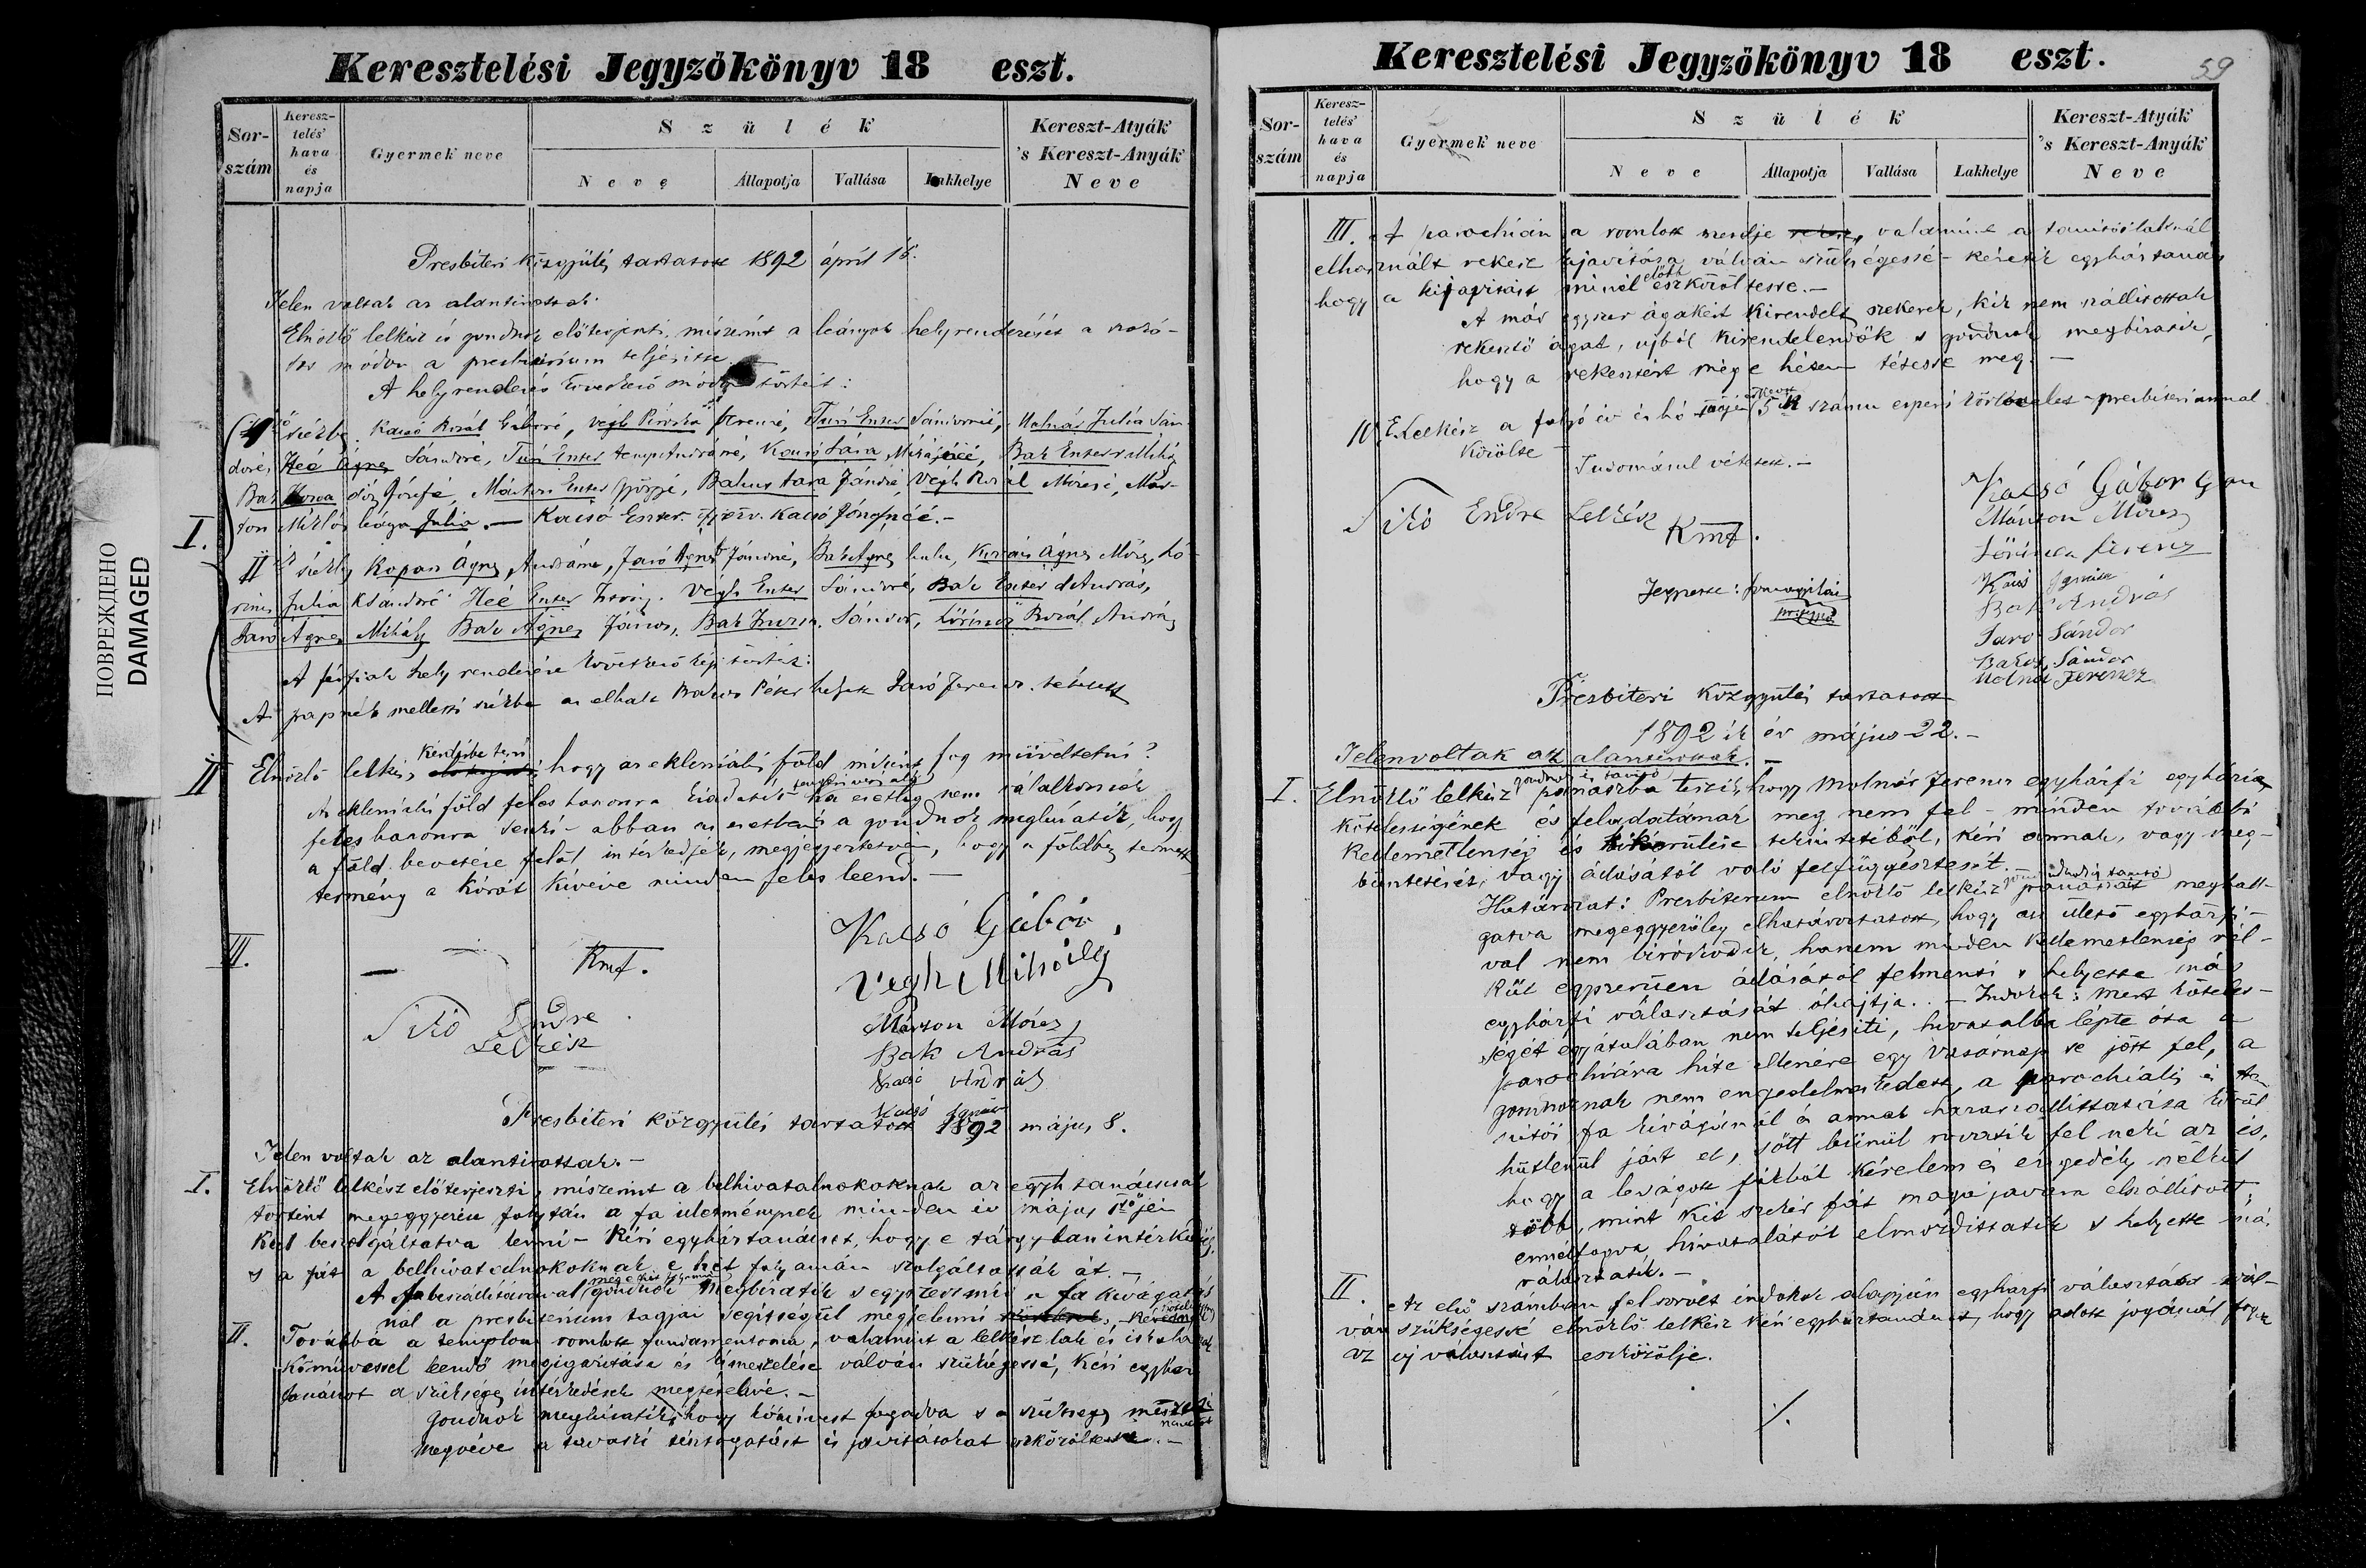 Keresztelési Jegyzőkönyv 18 eszt.
Sor-szám
Keresz-telés' hava és napja
Gyermek neve
Szülék
Neve
Állapotja
Vallása
Lakhelye
Kereszt-Atyák
's Kereszt-Anyák
Neve
Presbiteri közgyülés tartatott 1892 ápril 18.
Jelen voltak az alantirottak.
Elnöklő lelkész és gondnok előterjeszti, miszerint a leányok helyrendezését a szoká-
sos módon a presbiterium teljesitse.
A helyrendezés következő módon történt:
székbe Kacsó Rozál Gáboré, Végh Piroska Ferencé, Turi Eszter Sándoré, Molnár Julia Sán-
doré, Heé Ágnes Sándoré, Turi Eszter András, Kacsó Sára, Bak Eszter Mihály
Bak József, Márton Eszter, Bakos Sára Jánosé, Végh Rozál Mózesé, Már-
I. ton Miklós Julia. — Kacsó Eszter. Kacsó Józsefnéé. —
II székbe Kopan Ágnes Andrásné, Jaró Ágnes Jánosné, Bak Ágnes, Ágnes Mózes, Lő-
rincz Julia Sándoré Heé Eszter, Végh Eszter Sándoré, Bak Eszter András,
Jaró Ágnes Mihály Bak Ágnes János, Bak Zsuzsa Sándor, Lőrincz Rozál András
A férfiak hely rendezése következőkép történt:
A papnék melletti székbe az elhalt Bakos Péter helyett Jaró Ferencz tétetett
II Elnöklő lelkész kérdésbe teszi, hogy az ekklesiális föld miként fog műveltetni?
Az ekklesiális föld feles haszonra kiadatik ha esetleg nem találkoznék
feles haszonra senki - abban az esetben a gondnok megbizatik, hogy
a föld bevetése felől intézkedjék, megjegyeztetvén, hogy a földben termett
termény a kórót kivéve minden feles leend. —
III.
Kmf.
Kacsó Gábor
Vegh Mihály
Sikó Endre
Lelkész
Márton Mózes
Bak András
Kacsó András
Kacsó Ignácz
Presbiteri közgyülés tartatott 1892 május 8.
Jelen voltak az alantirottak. —
I. Elnöklő lelkész előterjeszti, miszerint a belhivatalnokoknak az egyh. tanácscsal
történt megegyezés folytán a fa illetménynek minden év május
kell beszolgáltatva lenni - Kéri egyháztanácsot, hogy e tárgyban intézkedjék,
s a fát a belhivatalnokoknak e hét folyamán szolgáltassák át. —
A fabeszállitásával gondnok megbizatik s egyszersmind a fa kivágatás
nál a presbiterium tagjai segitségül megjelenni
II. Továbbá a templom romlott fundamentoma, valamint a lelkészlak és iskolának
kőművessel leendő megigazitása és kimeszelése válván szükségessé, kéri egyház
tanácsot a szükséges intézkedések megtételére. —
Gondnok megbizatik, hogy kőmivest fogadva s a szükséges meszet
megvéve a tavaszi tisztogatást és javitásokat eszközöltesse. —
ПОВРЕЖДЕНО
DAMAGED
Keresztelési Jegyzőkönyv 18 eszt.
59
Sor-szám
Keresz-telés' hava és napja
Gyermek neve
Szülék
Neve
Állapotja
Vallása
Lakhelye
Kereszt-Atyák
's Kereszt-Anyák
Neve
III. A parochián a romlott valamint a tanitóilaknál
elhasznált rekesz kijavitása válván szükségessé - kéretik egyháztanács
hogy a kijavitást minél előbb eszközöltesse. —
A már egyszer ágakért kirendelt szekerek, kik nem szállitottak
rekesztő ágat, ujból kirendelendők s gondnok megbizatik,
hogy a rekesztést még e héten tétesse meg. —
IV. E. lelkész a folyó év és hó 5 számu esperesi körlevelet presbiteriummal
közölte —
Tudomásul vétetett. —
Sikó Endre Lelkész
Kmf.
Kacsó Gábor Gon
Márton Mózes
Lőrincz Ferencz
Kacsó Ignácz
Bak András
Jaró Sándor
Bakos Sándor
Molnár Ferencz
Presbiteri közgyülés tartatott
1892 ik év május 22. —
Jelenvoltak az alantirottak. —
I. Elnöklő lelkész gondnok és tanitó panaszba teszik, hogy Molnár Ferencz egyházfi egyházias
kötelességének és feladatának meg nem fel - minden további
kellemetlenség és kikerülése tekintetéből, kéri annak, vagy meg-
büntetését, vagy állásától való felfüggesztését. —
Határozat: Presbiterium elnöklő lelkész gondnok és tanitó panaszát meghall-
gatva megegyezőleg elhatároztatott, hogy az illető egyházfi-
val nem birókodik, hanem minden kellemetlenség nél-
kül egyszerüen állásától felmenti s helyette más
egyházfi választását óhajtja. — Indokok: mert köteles-
ségét egyátalában nem teljesiti, hivatalba lépte óta a
parochiára hite ellenére egy vasárnap se jött fel, a
gondnoknak nem engedelmeskedett, a parochiális és ta-
nitói fa kivágásánál és annak haza szállittatása körül
hütlenül járt el, sőt bünül rovatik fel neki az is,
hogy a levágott fákból kérelem és engedély nélkül
több, mint két szekér fát maga javára elszállitott;
ennélfogva hivatalától elmozdittatik s helyette más
választatik. —
II. Az első számban felsorolt indokok alapján egyházfi választás vál-
ván szükségessé elnöklő lelkész kéri egyháztanácsot, hogy adott jogánál fogva
az uj választást eszközölje.
./.